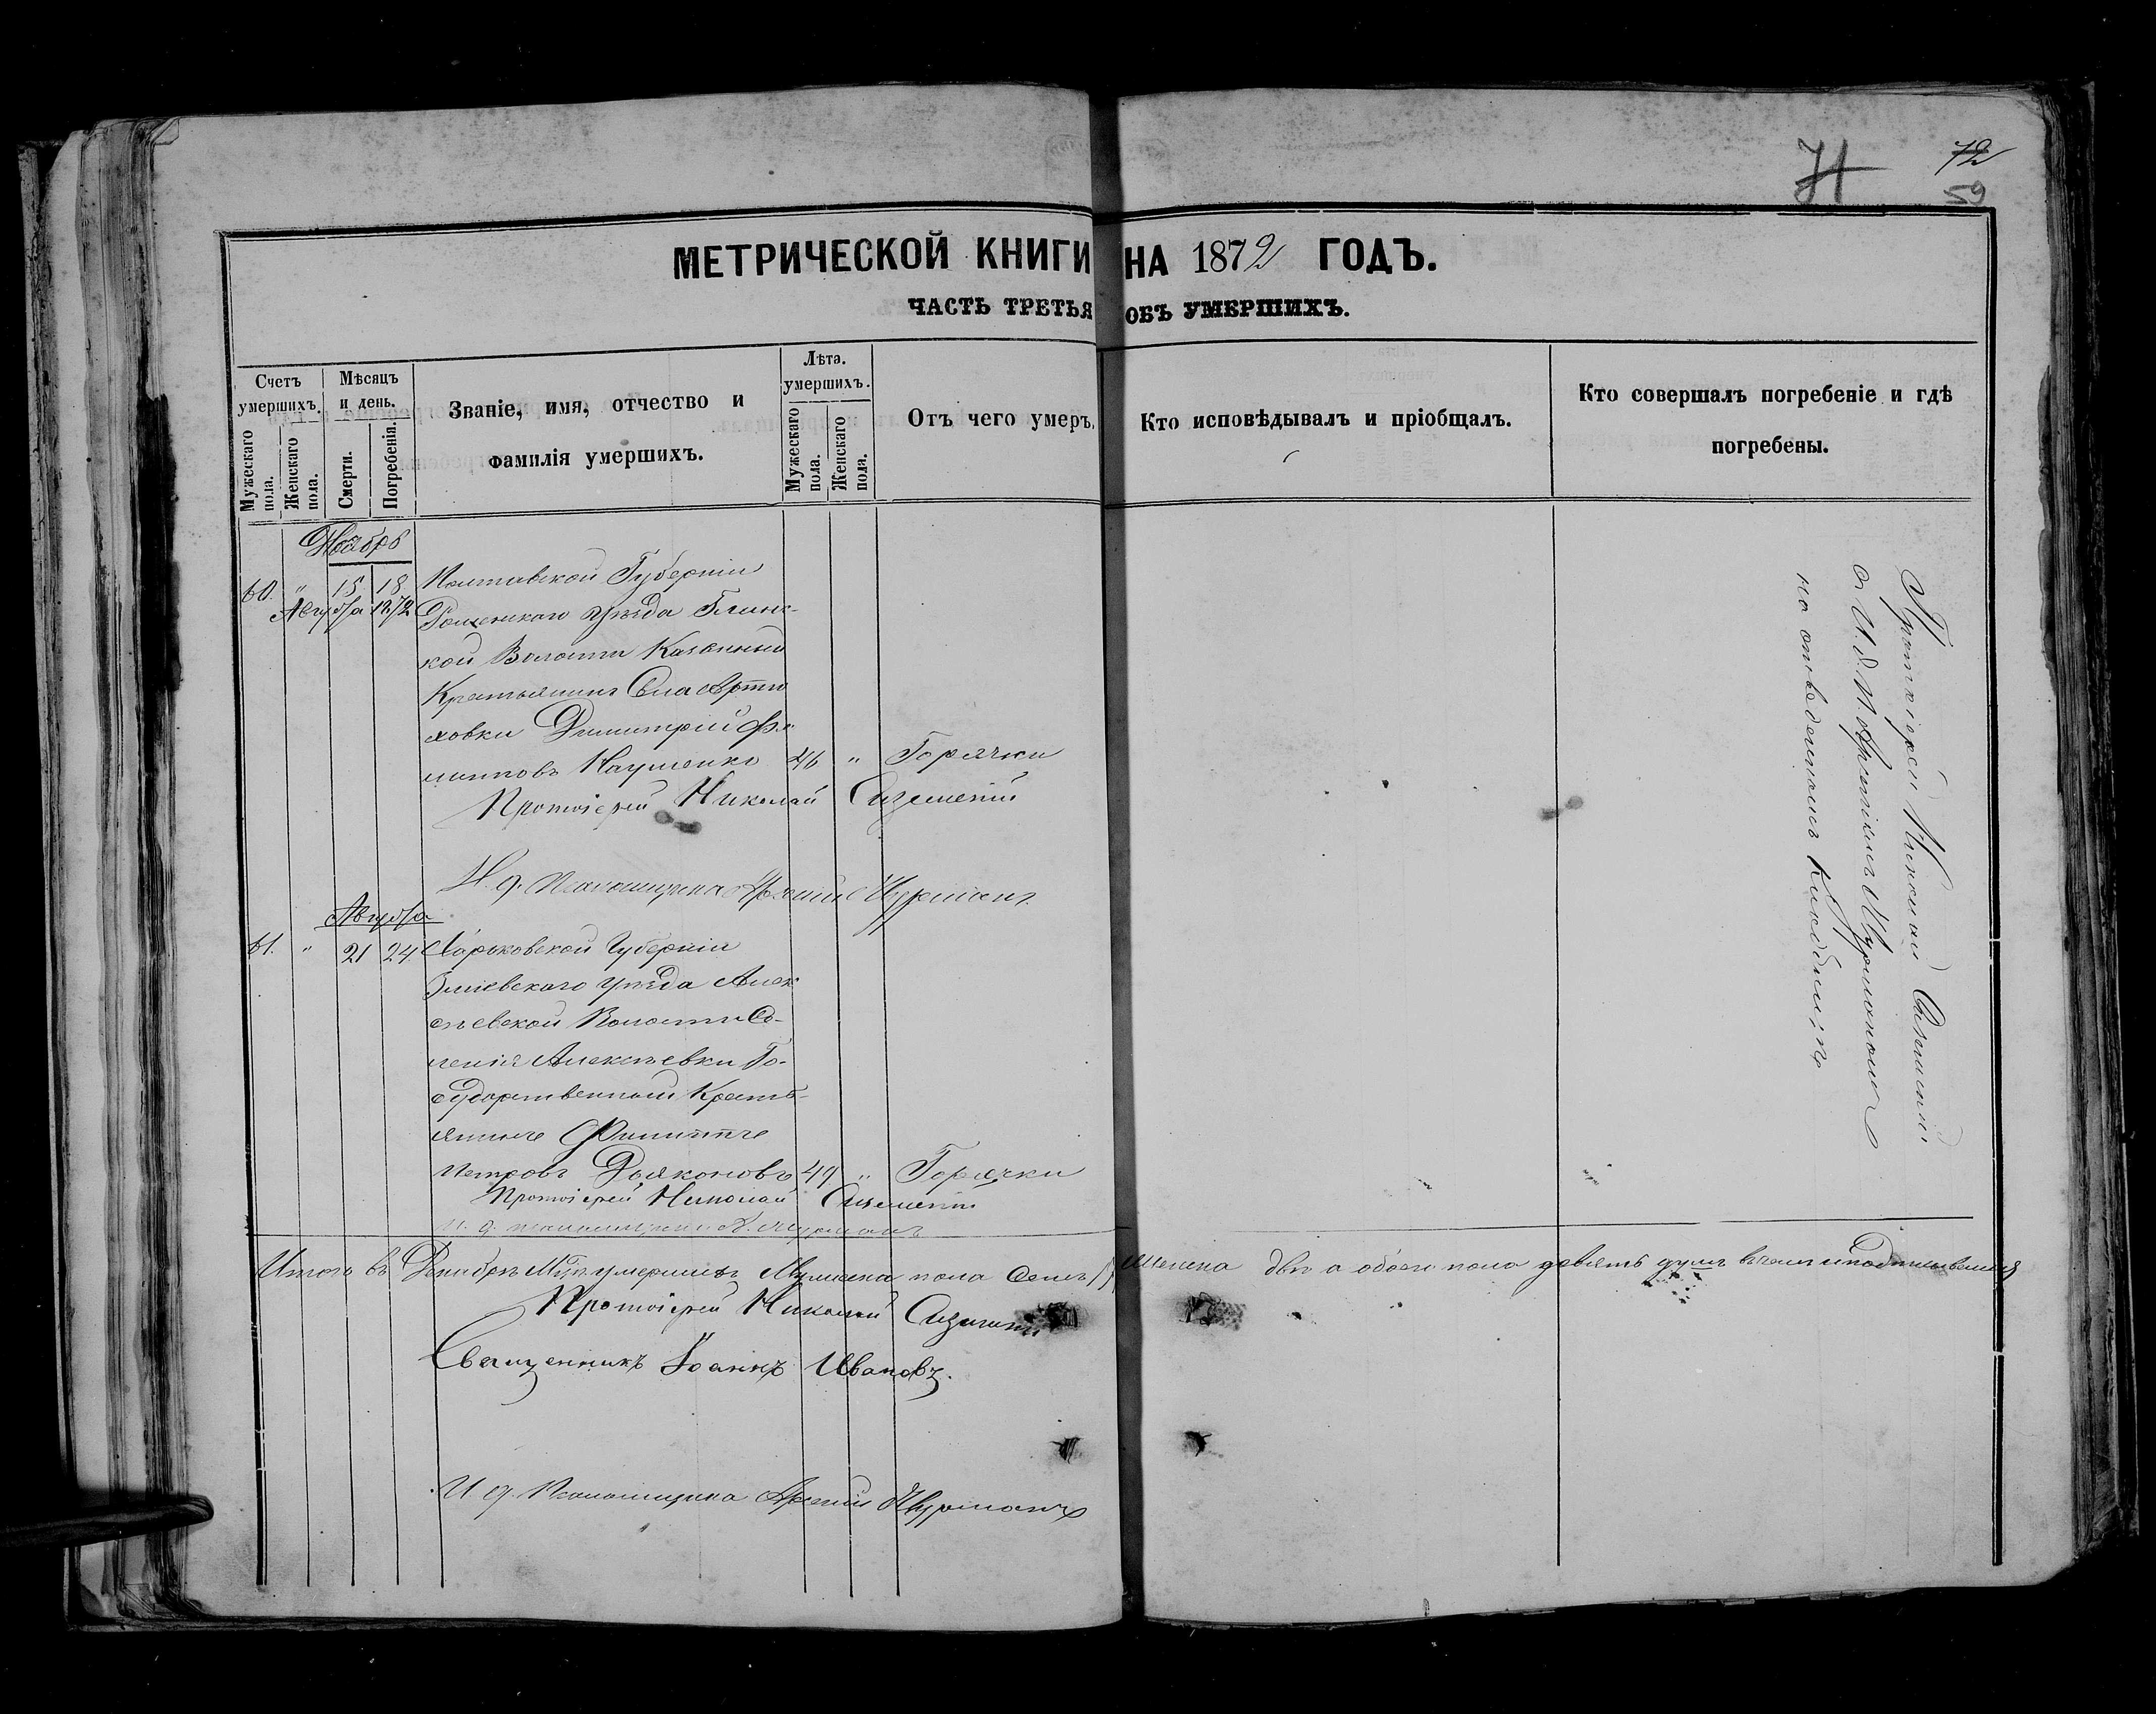 72
59
МЕТРИЧЕСКОЙ КНИГИ НА 1872 ГОДЪ.
ЧАСТЬ ТРЕТЬЯ ОБЪ УМЕРШИХЪ.
Счетъ умершихъ.
Мужескаго пола.
Женскаго пола.
Мѣсяцъ и день.
Смерти.
Погребенія.
Званіе, имя, отчество и
фамилія умершихъ.
Лѣта.
умершихъ.
Мужескаго пола.
Женскаго пола.
Отъ чего умеръ.
Кто исповѣдывалъ и пріобщалъ.
Кто совершалъ погребеніе и гдѣ
погребены.
60. " 15 18 Полтавской Губерніи
Августа 1872 Роменскаго Уѣзда Глинс-
кой Волости Казенный
Крестьянинъ Села
ховки Димитрій Фи-
липповъ Науменко 46 " Горячки
Протоіерей Николай
И. д. Псаломщика Арсеній Мурманъ
Августа
61. " 21 24 Харьковской Губерніи
Зміевскаго Уѣзда Алек-
сѣевской Волости Се-
ленія Алексѣевки Го-
сударственный Кресть-
янинъ Филиппъ
Петровъ Дьяконовъ 49 " Горячки
Протоіерей Николай
И. д. псаломщика А. Мурманъ
Протоіерей Николай
съ И. д. П. Арсеніемъ Мурманомъ
на отведенномъ Кладбищѣ
Итого въ Декабрѣ М-цѣ умершихъ Мужеска пола Семь, Женска двѣ а обоего пола девять душъ въ чемъ и подписываемся
Протоіерей Николай
Священникъ Іоаннъ Ивановъ.
И д. Псаломщика Арсеній Мурманъ